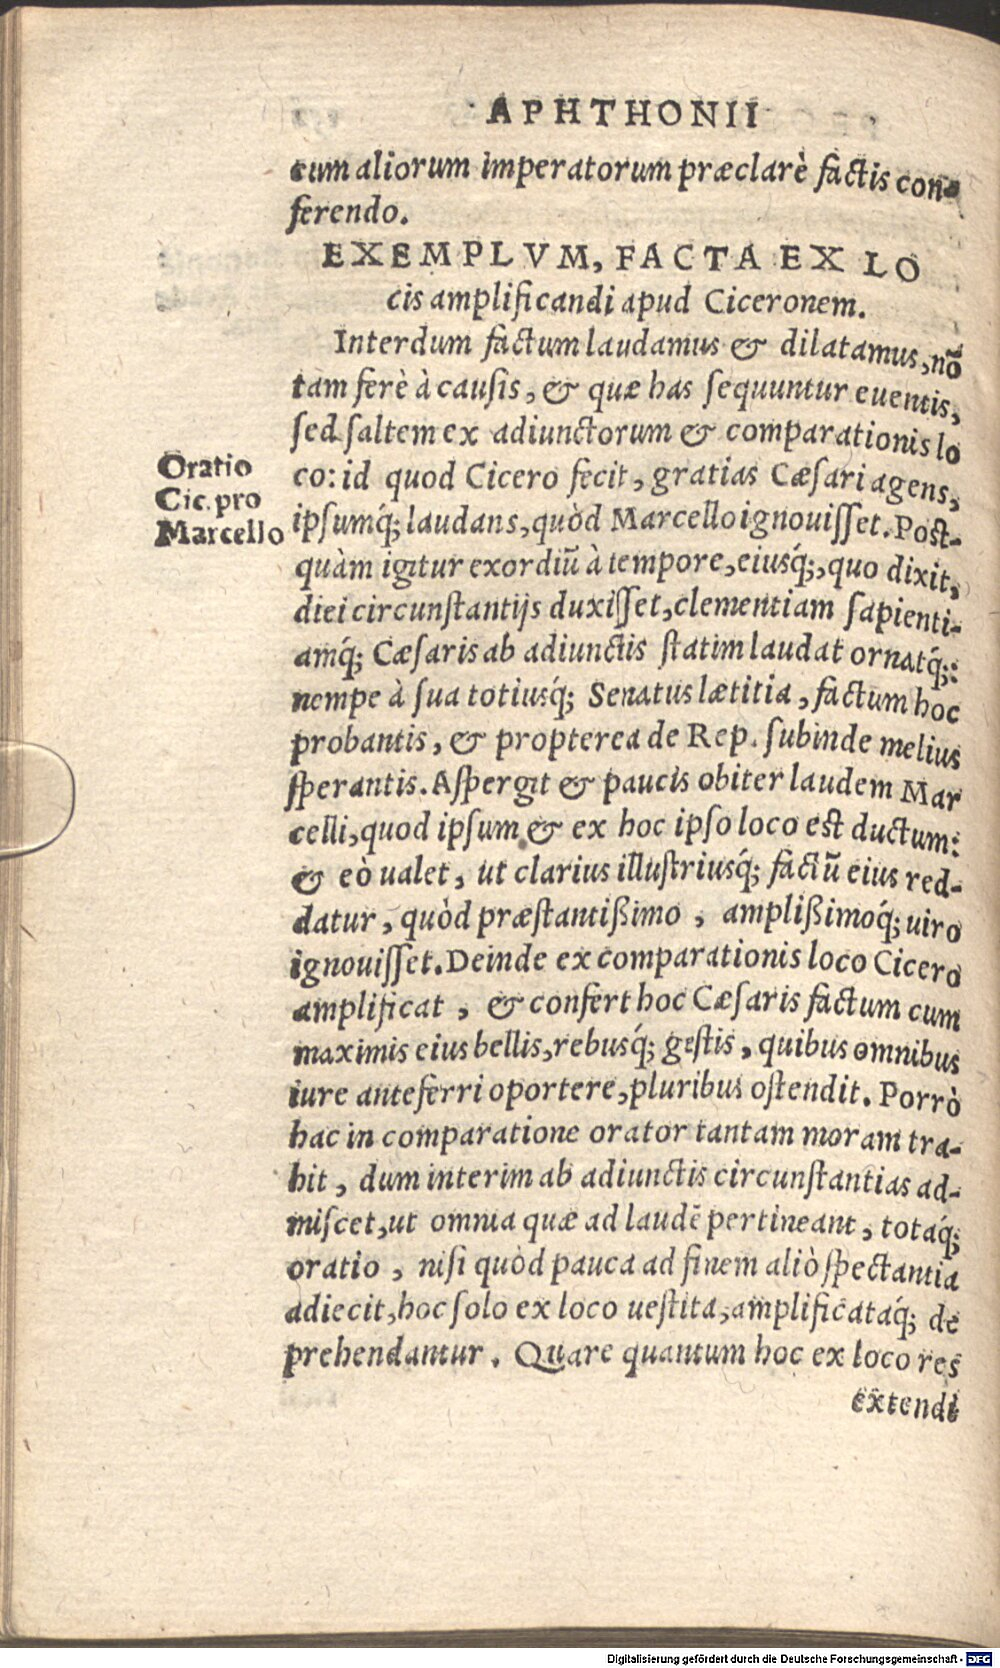 APHTHONII
cum aliorum imperatorum præclarè factis con-
ferendo.
EXEMPLVM, FACTA EX LO
cis amplificandi apud Ciceronem.
Interdum factum laudamus & dilatamus, nō
tam ferè à causis, & quæ has sequuntur euentis,
sed saltem ex adiunctorum & comparationis lo
Oratio
Cic. pro
Marcello
co: id quod Cicero fecit, gratias Cæsari agens,
ipsumq́; laudans, quòd Marcello ignouiſſet. Post-
quàm igitur exordiū à tempore, eiusq́;, quo dixit,
diei circunſtantijs duxiſſet, clementiam ſapienti-
amq́; Cæſaris ab adiunctis ſtatim laudat ornatq́;:
nempe à ſua totiusq́; Senatus lætitia, factum hoc
probantis, & propterea de Rep. ſubinde melius
ſperantis. Aſpergit & paucis obiter laudem Mar
celli, quod ipſum & ex hoc ipſo loco eſt ductum:
& eò ualet, ut clarius illuſtriusq́; factū eius red-
datur, quòd præſtantißimo, amplißimoq́; uiro
ignouiſſet. Deinde ex comparationis loco Cicero
amplificat, & confert hoc Cæſaris factum cum
maximis eius bellis, rebusq́; geſtis, quibus omnibus
iure anteferri oportere, pluribus oſtendit. Porrò
hac in comparatione orator tantam moram tra-
hit, dum interim ab adiunctis circunſtantias ad-
miſcet, ut omnia quæ ad laudē pertineant, totaq́;
oratio, niſi quòd pauca ad finem aliò ſpectantia
adiecit, hoc ſolo ex loco ueſtita, amplificataq́; de
prehendantur. Quare quantum hoc ex loco res
extendi
Digitalisierung gefördert durch die Deutsche Forschungsgemeinschaft - DFG